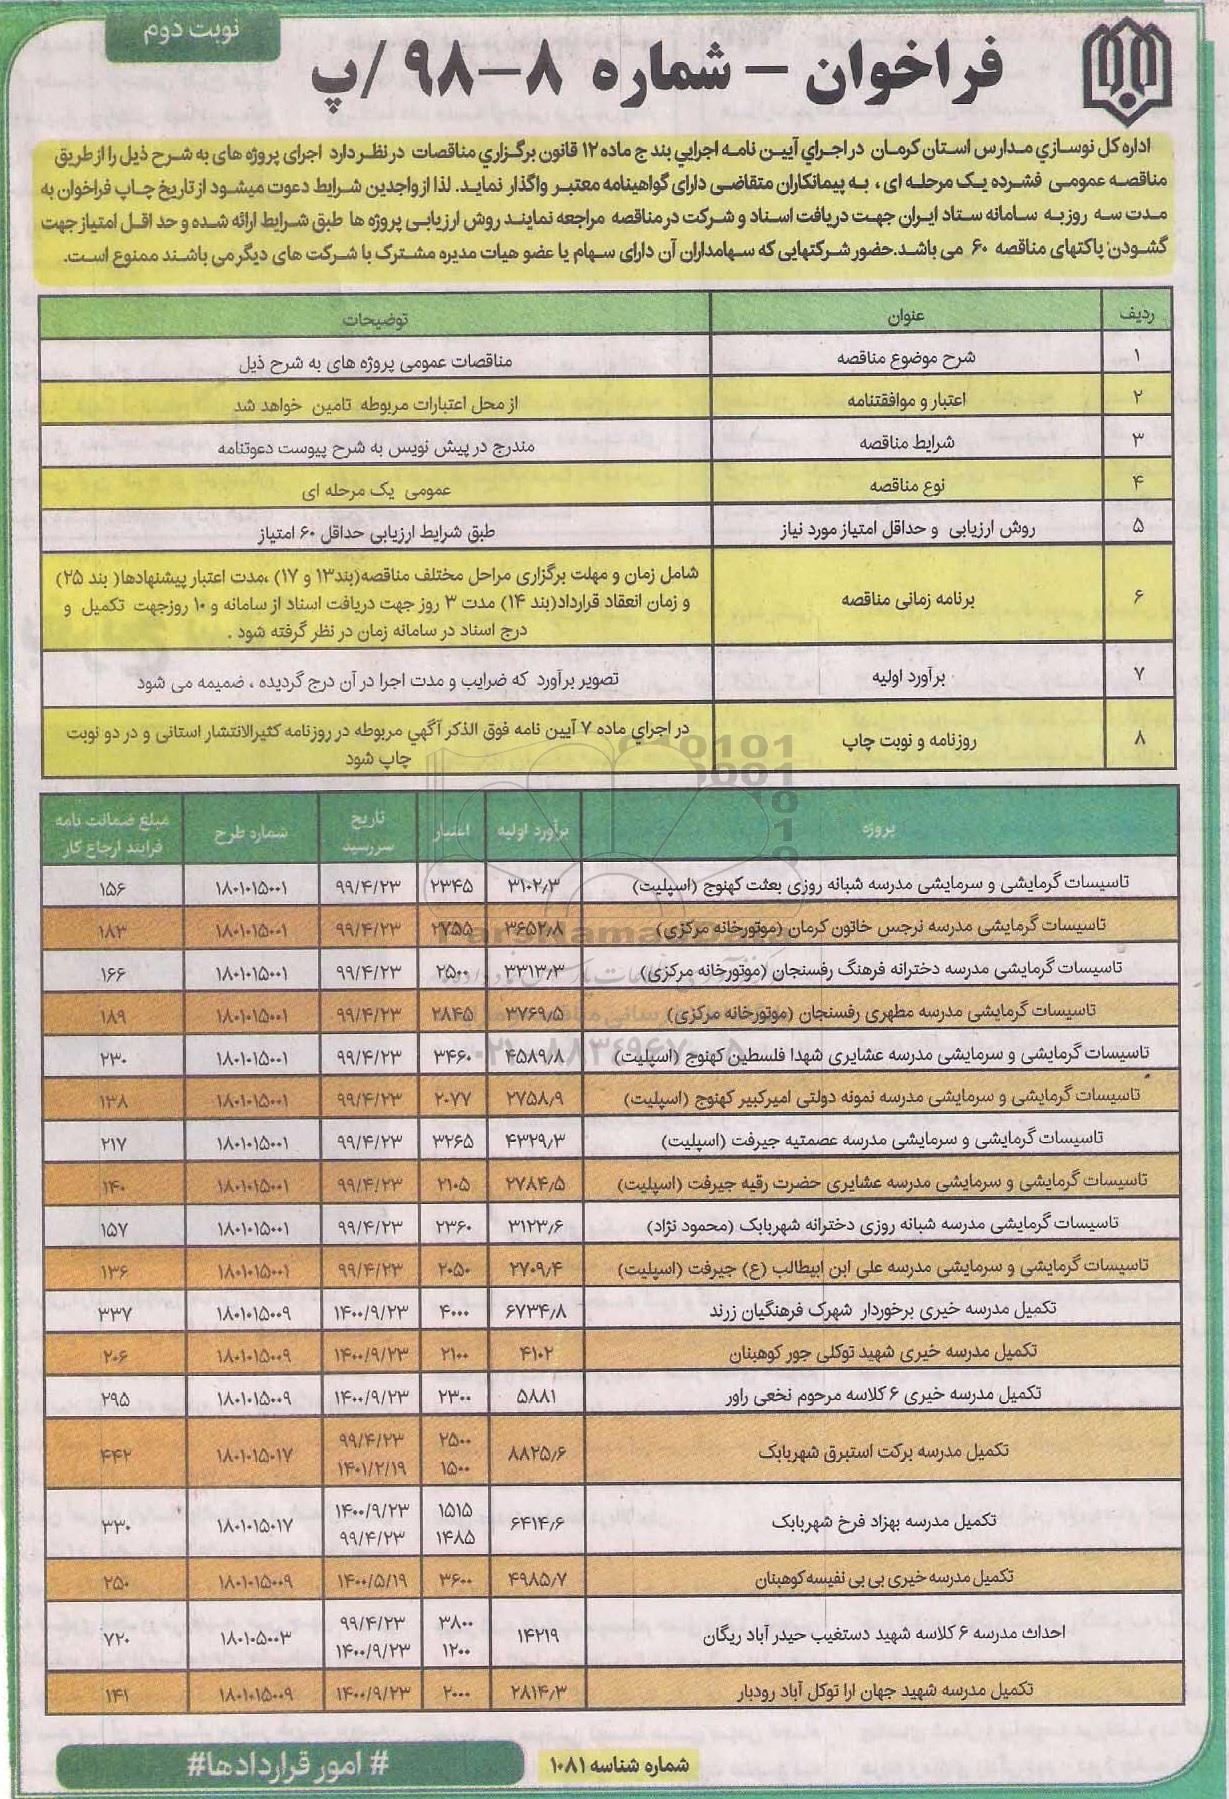 نوبت دوم
فراخوان - شماره ۸-۹۸ /پ
اداره کل نوسازي مدارس استان کرمان در اجراي آيين نامه اجرايي بند ج ماده ۱۲ قانون برگزاري مناقصات در نظر دارد اجرای پروژه های به شرح ذیل را از طریق
مناقصه عمومی فشرده یک مرحله ای ، به پیمانکاران متقاضی دارای گواهینامه معتبر واگذار نماید. لذا از واجدین شرایط دعوت میشود از تاریخ چاپ فراخوان به
مدت سه روز به سامانه ستاد ایران جهت دریافت اسناد و شرکت در مناقصه مراجعه نمایند روش ارزیابی پروژه ها طبق شرایط ارائه شده و حد اقل امتیاز جهت
گشودن پاکتهای مناقصه ۶۰ می باشد.حضور شرکتهایی که سهامداران آن دارای سهام یا عضو هیات مدیره مشترک با شرکت های دیگر می باشند ممنوع است.
ردیف عنوان توضیحات
۱ شرح موضوع مناقصه مناقصات عمومی پروژه های به شرح ذیل
۲ اعتبار و موافقتنامه از محل اعتبارات مربوطه تامین خواهد شد
۳ شرایط مناقصه مندرج در پیش نویس به شرح پیوست دعوتنامه
۴ نوع مناقصه عمومی یک مرحله ای
۵ روش ارزیابی و حداقل امتیاز مورد نیاز طبق شرایط ارزیابی حداقل ۶۰ امتیاز
۶ برنامه زمانی مناقصه شامل زمان و مهلت برگزاری مراحل مختلف مناقصه(بند۱۳ و ۱۷) ،مدت اعتبار پیشنهادها( بند ۲۵)
و زمان انعقاد قرارداد(بند ۱۴) مدت ۳ روز جهت دریافت اسناد از سامانه و ۱۰ روزجهت تکمیل و
درج اسناد در سامانه زمان در نظر گرفته شود .
۷ برآورد اولیه تصویر برآورد که ضرایب و مدت اجرا در آن درج گردیده ، ضمیمه می شود
۸ روزنامه و نوبت چاپ در اجراي ماده ۷ آيين نامه فوق الذكر آگهي مربوطه در روزنامه کثیرالانتشار استانی و در دو نوبت
چاپ شود
پروژه برآورد اولیه اعتبار تاریخ سررسید شماره طرح مبلغ ضمانت نامه فرایند ارجاع کار
تاسیسات گرمایشی و سرمایشی مدرسه شبانه روزی بعثت کهنوج (اسپلیت) ۳۱۰۲٫۳ ۲۳۴۵ ۹۹/۴/۲۳ ۱۸۰۱۰۱۵۰۰۱ ۱۵۶
تاسیسات گرمایشی مدرسه نرجس خاتون کرمان (موتورخانه مرکزی) ۳۶۵۲٫۸ ۲۷۵۵ ۹۹/۴/۲۳ ۱۸۰۱۰۱۵۰۰۱ ۱۸۳
تاسیسات گرمایشی مدرسه دخترانه فرهنگ رفسنجان (موتورخانه مرکزی) ۳۳۱۳٫۳ ۲۵۰۰ ۹۹/۴/۲۳ ۱۸۰۱۰۱۵۰۰۱ ۱۶۶
تاسیسات گرمایشی مدرسه مطهری رفسنجان (موتورخانه مرکزی) ۳۷۶۹٫۵ ۲۸۴۵ ۹۹/۴/۲۳ ۱۸۰۱۰۱۵۰۰۱ ۱۸۹
تاسیسات گرمایشی و سرمایشی مدرسه عشایری شهدا فلسطین کهنوج (اسپلیت) ۴۵۸۹٫۸ ۳۴۶۰ ۹۹/۴/۲۳ ۱۸۰۱۰۱۵۰۰۱ ۲۳۰
تاسیسات گرمایشی و سرمایشی مدرسه نمونه دولتی امیرکبیر کهنوج (اسپلیت) ۲۷۵۸٫۹ ۲۰۷۷ ۹۹/۴/۲۳ ۱۸۰۱۰۱۵۰۰۱ ۱۳۸
تاسیسات گرمایشی و سرمایشی مدرسه عصمتیه جیرفت (اسپلیت) ۴۳۲۹٫۳ ۳۲۶۵ ۹۹/۴/۲۳ ۱۸۰۱۰۱۵۰۰۱ ۲۱۷
تاسیسات گرمایشی و سرمایشی مدرسه عشایری حضرت رقیه جیرفت (اسپلیت) ۲۷۸۴٫۵ ۲۱۰۵ ۹۹/۴/۲۳ ۱۸۰۱۰۱۵۰۰۱ ۱۴۰
تاسیسات گرمایشی مدرسه شبانه روزی دخترانه شهربابک (محمود نژاد) ۳۱۲۳٫۶ ۲۳۶۰ ۹۹/۴/۲۳ ۱۸۰۱۰۱۵۰۰۱ ۱۵۷
تاسیسات گرمایشی و سرمایشی مدرسه علی ابن ابیطالب (ع) جیرفت (اسپلیت) ۲۷۰۹٫۴ ۲۰۵۰ ۹۹/۴/۲۳ ۱۸۰۱۰۱۵۰۰۱ ۱۳۶
تکمیل مدرسه خیری برخوردار شهرک فرهنگیان زرند ۶۷۳۴٫۸ ۴۰۰۰ ۱۴۰۰/۹/۲۳ ۱۸۰۱۰۱۵۰۰۹ ۳۳۷
تکمیل مدرسه خیری شهید توکلی جور کوهبنان ۴۱۰۲ ۲۱۰۰ ۱۴۰۰/۹/۲۳ ۱۸۰۱۰۱۵۰۰۹ ۲۰۶
تکمیل مدرسه خیری ۶ کلاسه مرحوم نخعی راور ۵۸۸۱ ۲۳۰۰ ۱۴۰۰/۹/۲۳ ۱۸۰۱۰۱۵۰۰۹ ۲۹۵
تکمیل مدرسه برکت استبرق شهربابک ۸۸۲۵٫۶ ۲۵۰۰ ۹۹/۴/۲۳ ۱۸۰۱۰۱۵۰۱۷ ۴۴۲
۱۵۰۰ ۱۴۰۱/۲/۱۹
تکمیل مدرسه بهزاد فرخ شهربابک ۶۴۱۴٫۶ ۱۵۱۵ ۱۴۰۰/۹/۲۳ ۱۸۰۱۰۱۵۰۱۷ ۳۳۰
۱۴۸۵ ۹۹/۴/۲۳
تکمیل مدرسه خیری بی بی نفیسه کوهبنان ۴۹۸۵٫۷ ۳۶۰۰ ۱۴۰۰/۵/۱۹ ۱۸۰۱۰۱۵۰۰۹ ۲۵۰
احداث مدرسه ۶ کلاسه شهید دستغیب حیدر آباد ریگان ۱۴۲۱۹ ۳۸۰۰ ۹۹/۴/۲۳ ۱۸۰۱۰۵۰۰۳ ۷۲۰
۱۲۰۰ ۱۴۰۰/۹/۲۳
تکمیل مدرسه شهید جهان ارا توکل آباد رودبار ۲۸۱۴٫۳ ۲۰۰۰ ۱۴۰۰/۹/۲۳ ۱۸۰۱۰۱۵۰۰۹ ۱۴۱
شماره شناسه ۱۰۸۱
# امور قراردادها#